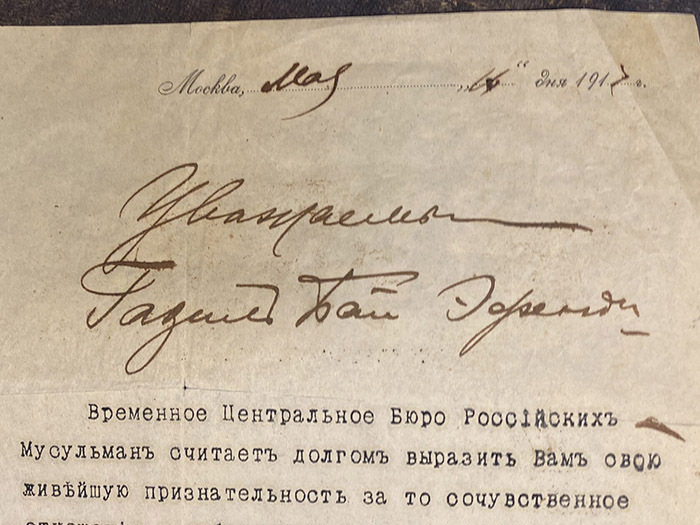 Москва, Мая „14“ дня 1917 г.
Уважаемы
Бай Эфенди
Временное Центральное Бюро Россійскихъ
Мусульманъ считаетъ долгомъ выразить Вамъ свою
живѣйшую признательность за то сочувственное